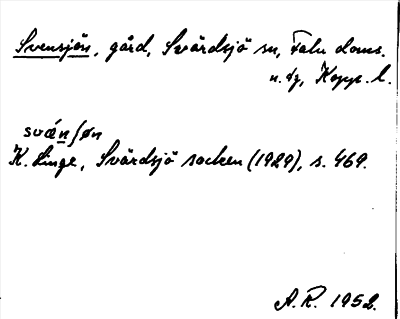 Svensjön, gård, Svärdsjö sn, Falu doms.
n. fg, Kopp. l.
svǽnʃøn
K. Linge, Svärdsjö socken (1929), s. 469.
A.R. 1952.